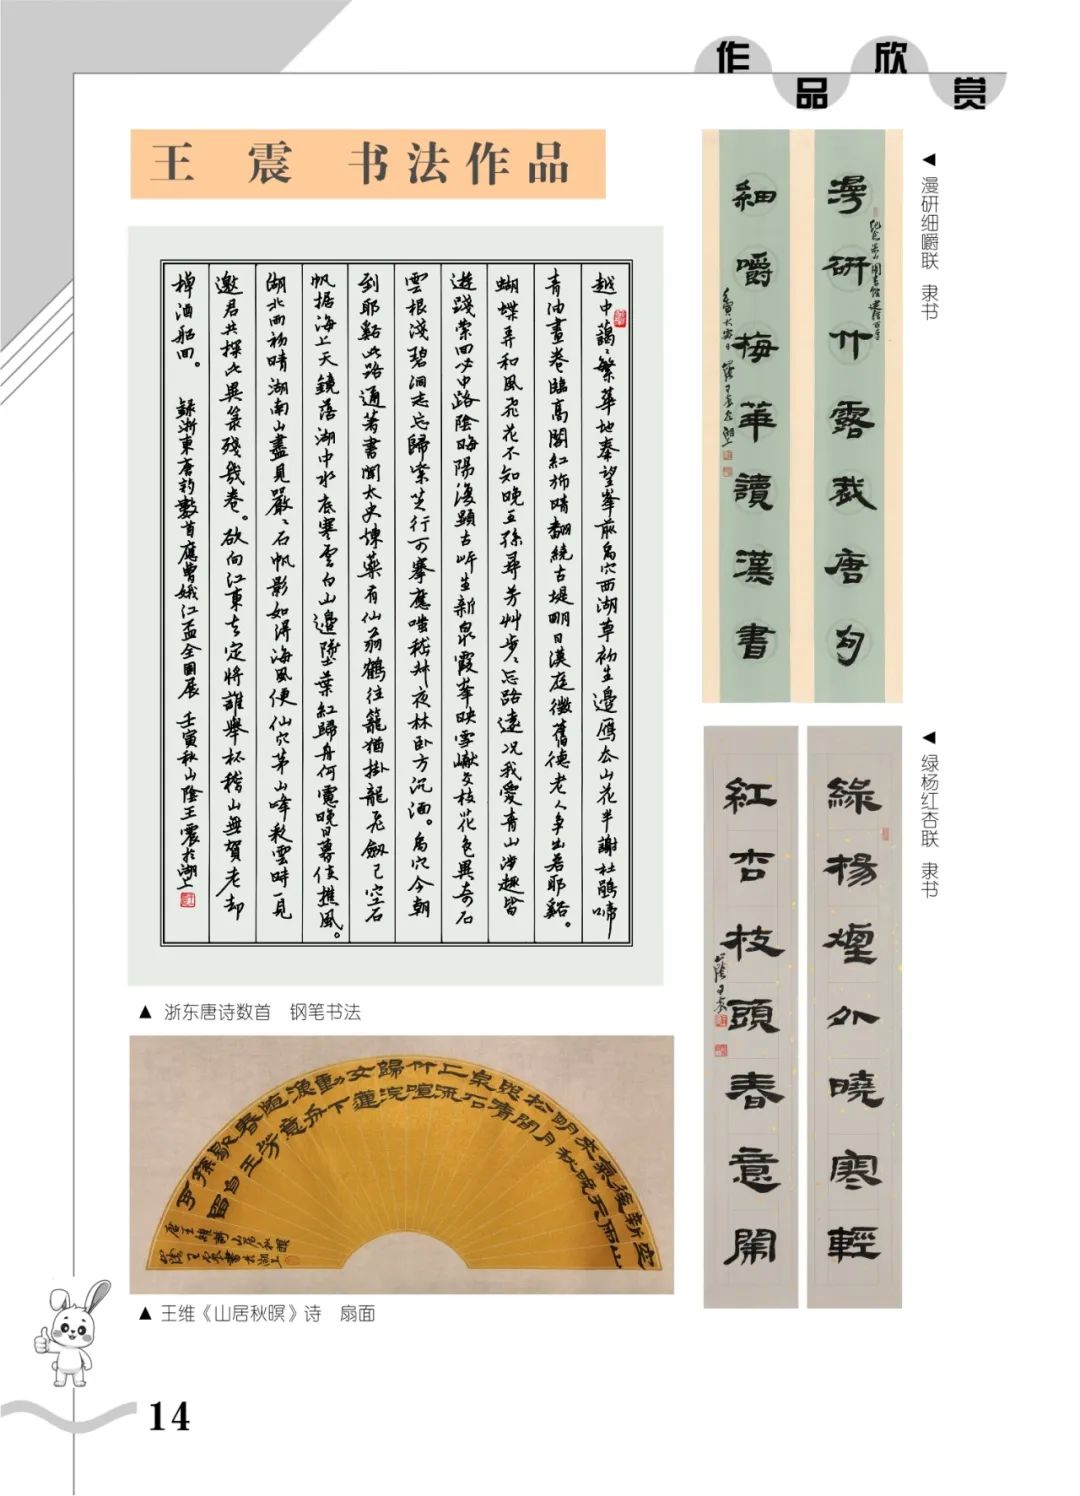 作品欣赏
王 震 书法作品
越中蔼〻繁华地秦望峰前禹穴西湖草初生边雁去山花半谢杜鹃啼
青油画卷临高阁红斾晴翻绕古堤明日汉庭徵旧德老人争出若耶谿。
蝴蝶弄和风飞花不知晚王孙寻芳草步〻忘路远况我爱青山涉趣皆
游践萦回必中路阴晦阳复显古岸生新泉霞峰映雪巘交枝花色异奇石
云根浅碧洞志忘归紫芝行可搴应嗤嵇叔夜林卧方沉湎。禹穴今朝
到耶谿此路通著书闻太史炼药有仙翁鹤往笼犹挂龙飞剑已空石
帆摇海上天镜落湖中水底寒云白山边坠叶红归舟何虑晚日暮使樵风。
湖北雨初晴湖南山尽见岩〻石帆影如得海风便仙穴茅山峰彩云时一见
邀君共探此异箓残几卷。欲向江东去定将谁举杯稽山无贺老却
棹酒船回。 录浙东唐诗数首应曹娥江杯全国展 壬寅秋山阴王震于湖上
▲ 浙东唐诗数首 钢笔书法
空山新雨后天气晚来秋明月松间照清泉石上流竹喧归浣女莲动下渔舟随意春芳歇王孙自可留
唐王维诗山居秋暝
山阴王震书于湖上
▲ 王维《山居秋暝》诗 扇面
漫研竹露裁唐句
細嚼梅華讀漢書
◀ 漫研细嚼联 隶书
緑楊煙外曉寒輕
紅杏枝頭春意鬧
山陰王震
◀ 绿杨红杏联 隶书
14